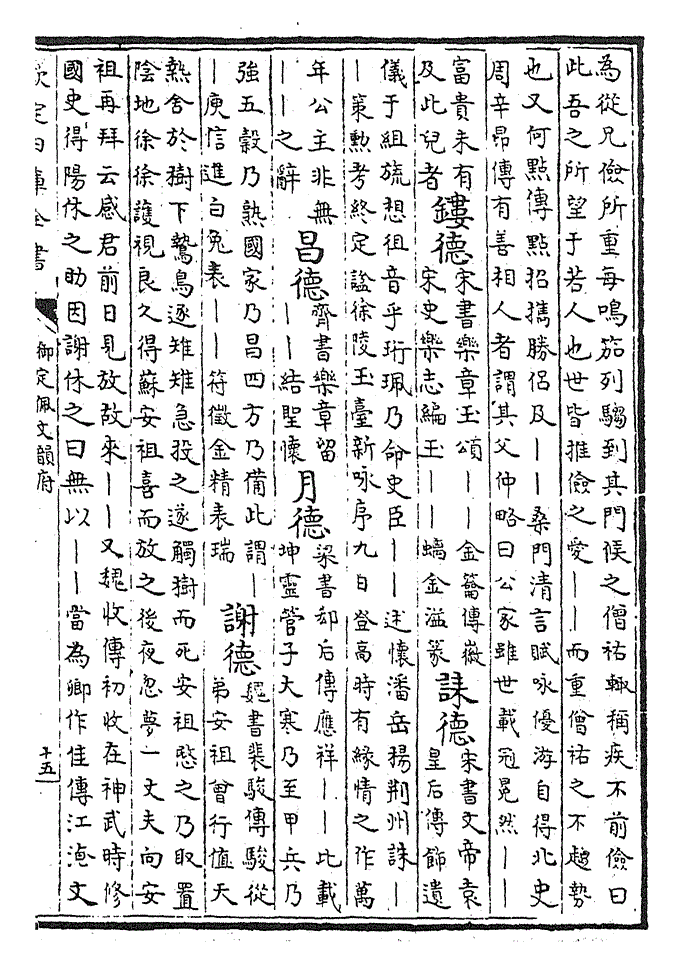 為從兄儉所重每鳴笳列騶到其門候之僧祐輙稱疾不前儉曰
此吾之所望于若人也世皆推儉之愛——而重僧祐之不趨勢
也又何點傳點招擕勝侶及——桑門清言賦咏優游自得北史
周辛昂傳有善相人者謂其父仲略曰公家雖世載冠冕然——
富貴未有
及此兒者
鏤德
宋書樂章玉頌——金籥傳徽
宋史樂志編玉——螭金溢篆
誄德
宋書文帝袁
皇后傳飾遺
儀于組旒想徂音乎珩珮乃命史臣——述懷潘岳揚荆州誄—
—策勲考終定諡徐陵玉臺新咏序九日登高時有緣情之作萬
年公主非無
——之辭
昌德
齊書樂章留
——結聖懷
月德
梁書郄后傳應祥——比載
坤靈管子大寒乃至甲兵乃
強五穀乃熟國家乃昌四方乃備此謂—
—庾信進白兔表——符徵金精表瑞
謝德
魏書裴駿傳駿從
弟安祖曾行值天
熱舍於樹下鷙鳥逐雉雉急投之遂觸樹而死安祖愍之乃取置
陰地徐徐護視良久得蘇安祖喜而放之後夜忽夢一丈夫向安
祖再拜云感君前日見放故來——又魏收傳初收在神武時修
國史得陽休之助因謝休之曰無以——當為卿作佳傳江淹文
欽定四庫全書
御定佩文韻府
十五